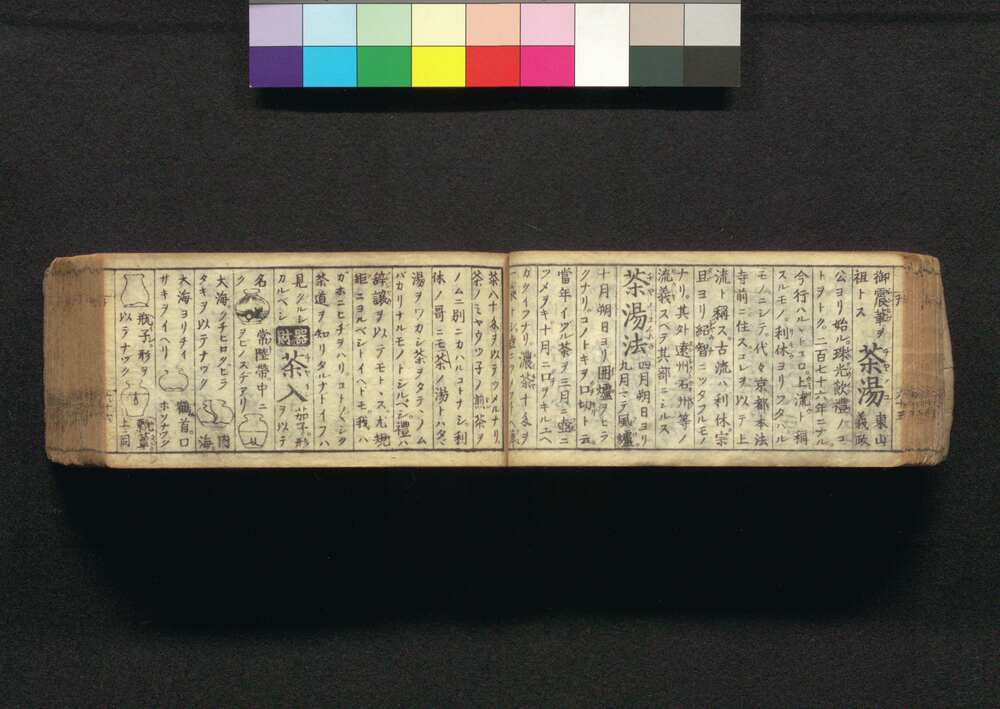 御宸筆ヲ 茶湯 東山義政
祖トス
公ヨリ始ル珠光飲禮ノコ
トヲトク二百七十六年ニナル
今行ハルヽトコロ上流ト稱
スルモノ利休ヨリツタハル
モノニシテ代々京都本法
寺前ニ住スコレヲ以テ上
流ト稱ス古流ハ利休宗
旦ヨリ紹智ニツタフルモノ
ナリ。其外遠州石州等ノ
流義スベテ其部ニツ
茶湯法 四月朔日ヨリ九月マデ風爐
十月朔日ヨリ囲爐ヲヒラ
クナリコノトキヲ口切ト云
當年イヅル茶ヲ三月ニ壺ニ
ツメヲキ十月ニ口ヲキルユヘ
カクイフナリ濃茶
茶八十匁ヲ以テウメルナリ
茶ノミヤウツ子ノ煎茶ヲ
ノムニ別ニカハルコトナシ利
休ノ哥ニモ茶ノ湯トハタヾ
湯ヲワカシ茶ヲタテヽノム
バカリナルモノトシルベシ禮ハ
辞譲ヲ以テモトヽス尤規
矩ニヨルベシトイヘトモ我ハ
ガホニヒヂヲハリコ
茶道ヲ知リタルナドイフハ
見グルシ 器財 茶入 茄子形
カルベシ ヲ以テ
名 常陸帶中ニ
ク クビノステアリ
大海 クチヒロクヒラ
タキヲ以テナヅク 内海
大海ヨリチイ 鶴首 口
サキヲイヘリ ホソナガシ
瓶子 形ヲ
以テナヅク 上同